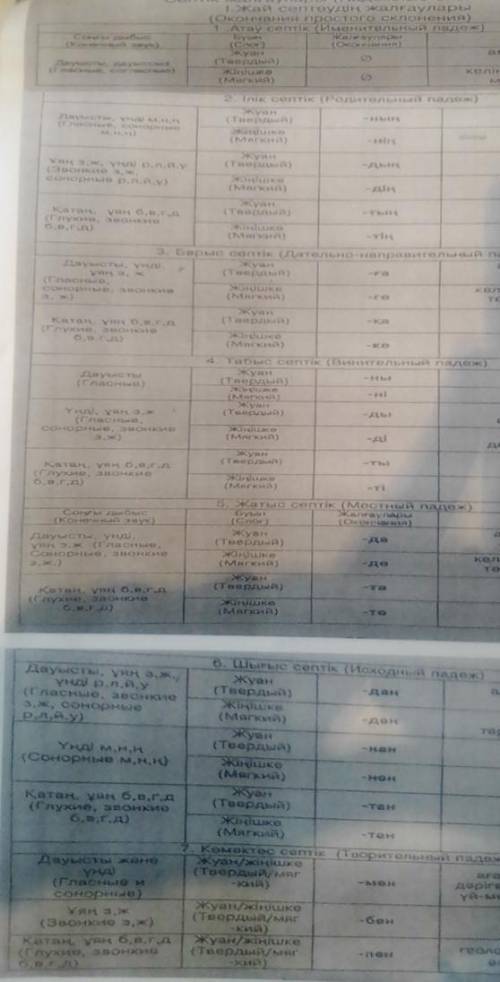 1.Жай септеудің жалғаулары
(Окончания простого склонения)
1. Атау септік (Именительный падеж)
Соңғы дыбыс Буын Жалғаулары
(Конечный звук) (Слог) (Окончания)
Дауысты, дауыссыз Жуан
(Гласные, согласные) (Твердый) ∅
Жіңішке
(Мягкий) ∅
2. Ілік септік (Родительный падеж)
Дауысты, үнді м,н,ң Жуан
(Гласные, сонорные (Твердый) -ның
м,н,ң) Жіңішке
(Мягкий) -нің
Ұяң з,ж, үнді р,л,й,у Жуан
(Звонкие з,ж, (Твердый) -дың
сонорные р,л,й,у) Жіңішке
(Мягкий) -дің
Қатаң, ұяң б,в,г,д Жуан
(Глухие, звонкие (Твердый) -тың
б,в,г,д) Жіңішке
(Мягкий) -тің
3. Барыс септік (Дательно-направительный
Дауысты, үнді, Жуан
ұяң з, ж (Твердый) -ға
(Гласные, Жіңішке
сонорные, звонкие (Мягкий) -ге
з, ж)
Қатаң, ұяң б,в,г,д Жуан
(Глухие, звонкие (Твердый) -қа
б,в,г,д) Жіңішке
(Мягкий) -ке
4. Табыс септік (Винительный падеж)
Дауысты Жуан
(Гласные) (Твердый) -ны
Жіңішке
(Мягкий) -ні
Үнді, ұяң з,ж Жуан
(Гласные, (Твердый) -ды
сонорные, звонкие Жіңішке
з,ж) (Мягкий) -ді
Қатаң, ұяң б,в,г,д Жуан
(Глухие, звонкие (Твердый) -ты
б,в,г,д) Жіңішке
(Мягкий) -ті
5. Жатыс септік (Местный падеж)
Соңғы дыбыс Буын Жалғаулары
(Конечный звук) (Слог) (Окончания)
Дауысты, үнді, Жуан
ұяң з,ж (Гласные, (Твердый) -да
Сонорные, звонкие Жіңішке
з,ж.) (Мягкий) -де
Қатаң, ұяң б,в,г,д Жуан
(Глухие, звонкие (Твердый) -та
б,в,г,д) Жіңішке
(Мягкий) -те
6. Шығыс септік (Исходный падеж)
Дауысты, ұяң з,ж, Жуан
үнді р,л,й,у (Твердый) -дан
(Гласные, звонкие Жіңішке
з,ж, сонорные (Мягкий) -ден
р,л,й,у)
Үнді м,н,ң Жуан
(Сонорные м,н,ң) (Твердый) -нан
Жіңішке
(Мягкий) -нен
Қатаң, ұяң б,в,г,д Жуан
(Глухие, звонкие (Твердый) -тан
б,в,г,д) Жіңішке
(Мягкий) -тен
7. Көмектес септік (Творительный падеж
Дауысты және Жуан/жіңішке
үнді (Твердый/мяг
(Гласные и -кий) -мен
сонорные)
Ұяң з,ж Жуан/жіңішке
(Звонкие з,ж) (Твердый/мяг -бен
-кий)
Қатаң, ұяң б,в,г,д Жуан/жіңішке
(Глухие, звонкие (Твердый/мяг -пен
б,в,г,д) -кий)